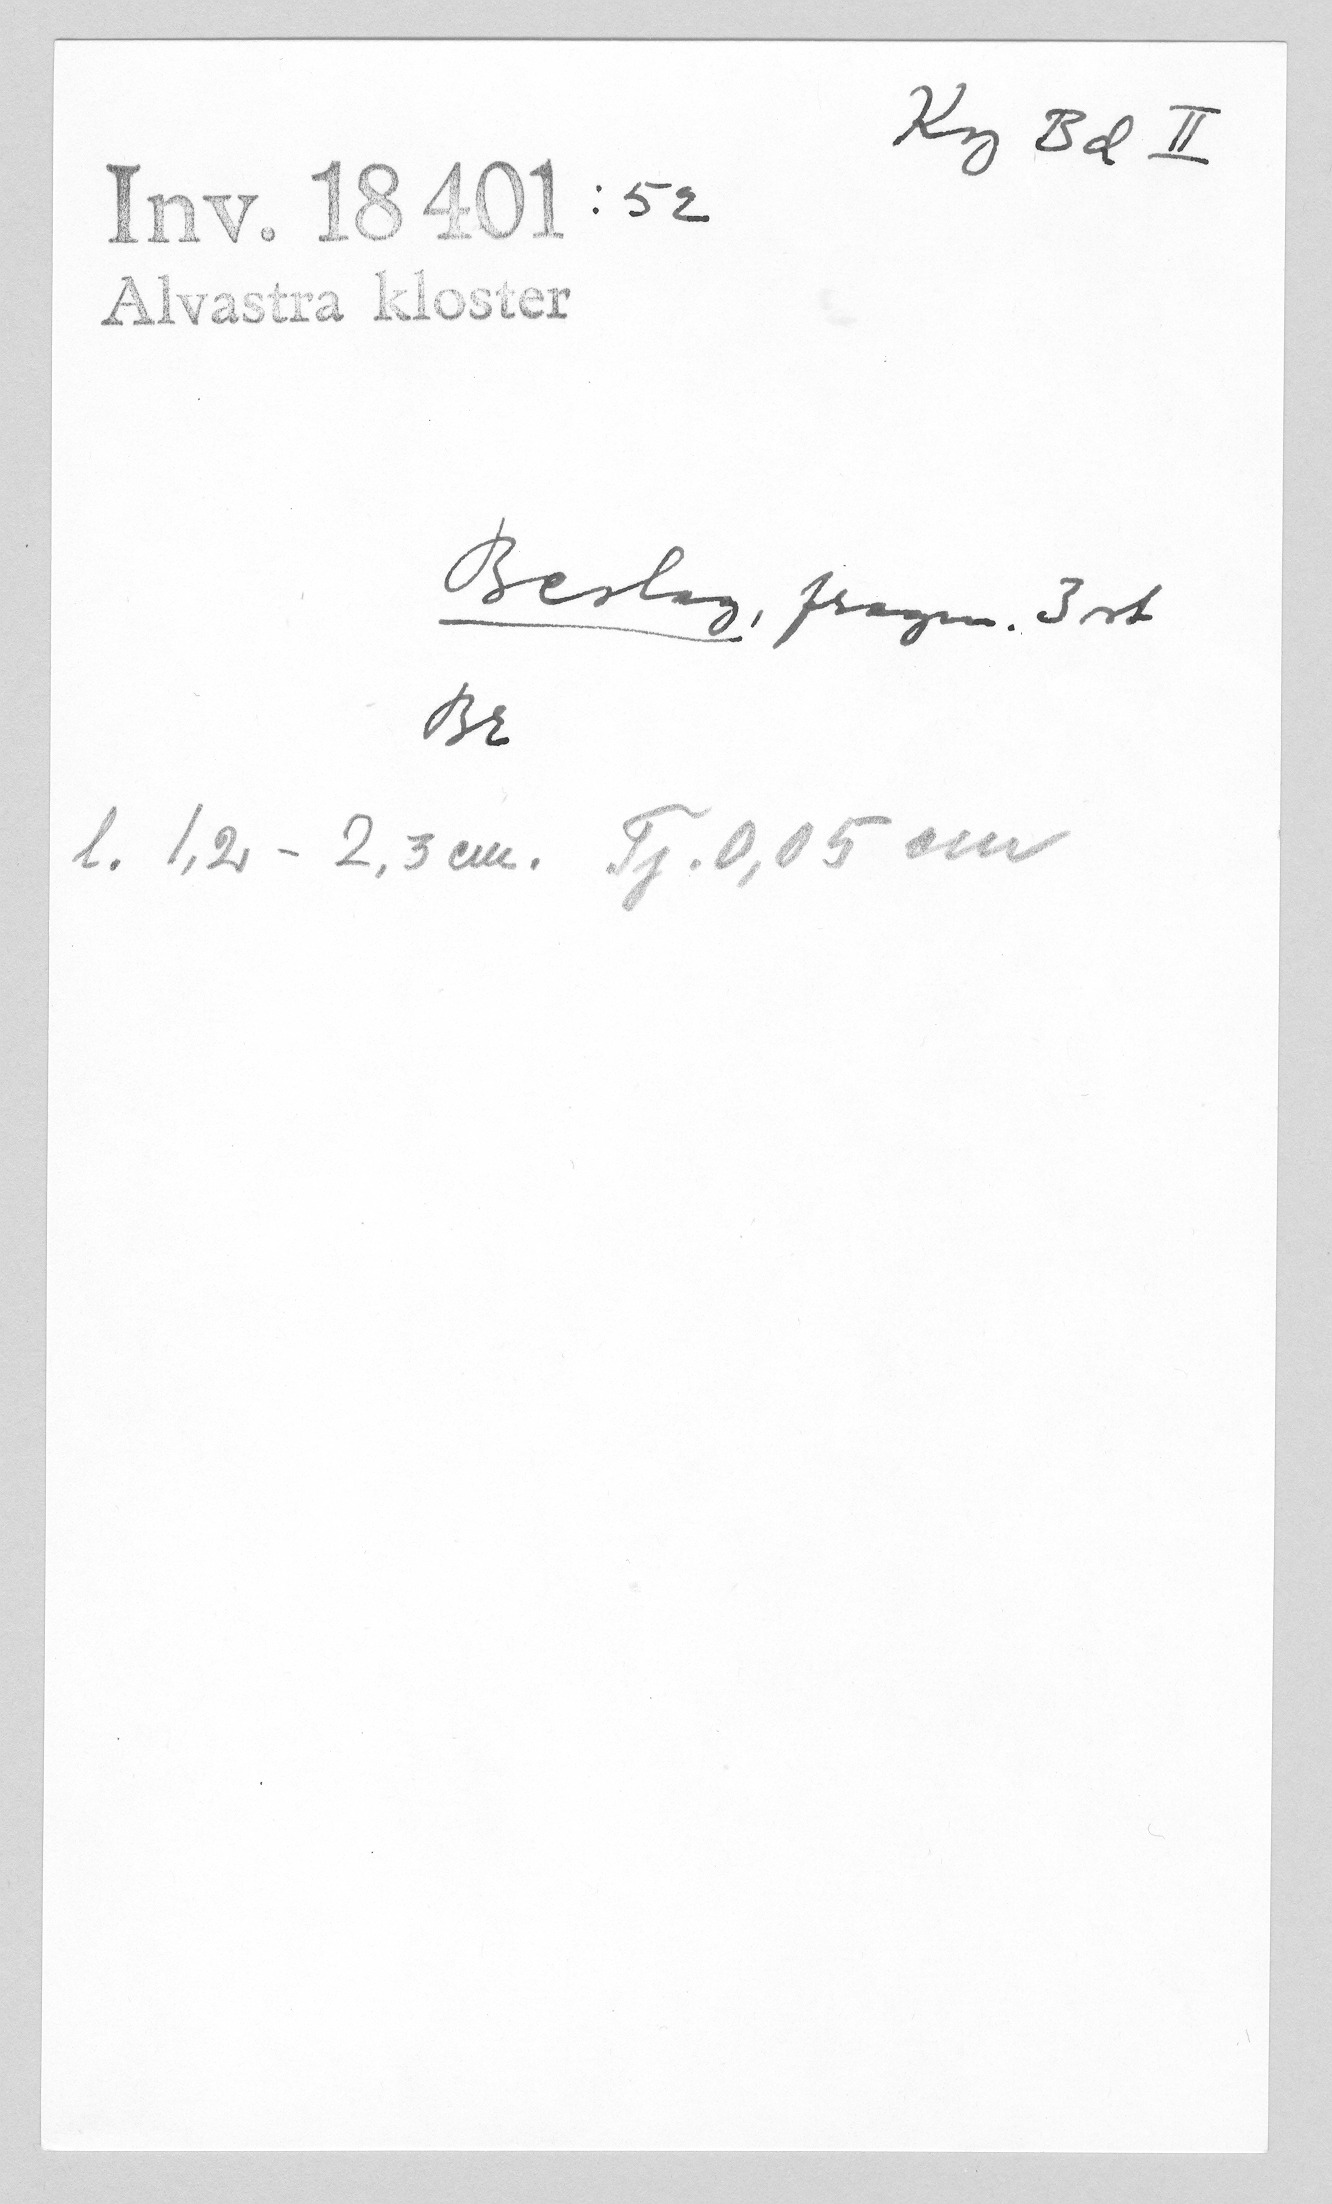 Kg Bd II
Inv. 18 401 : 52
Alvastra kloster
Beslag, fragm. 3 st
Br
l. 1,2 - 2,3 cm. Tj. 0,05 cm